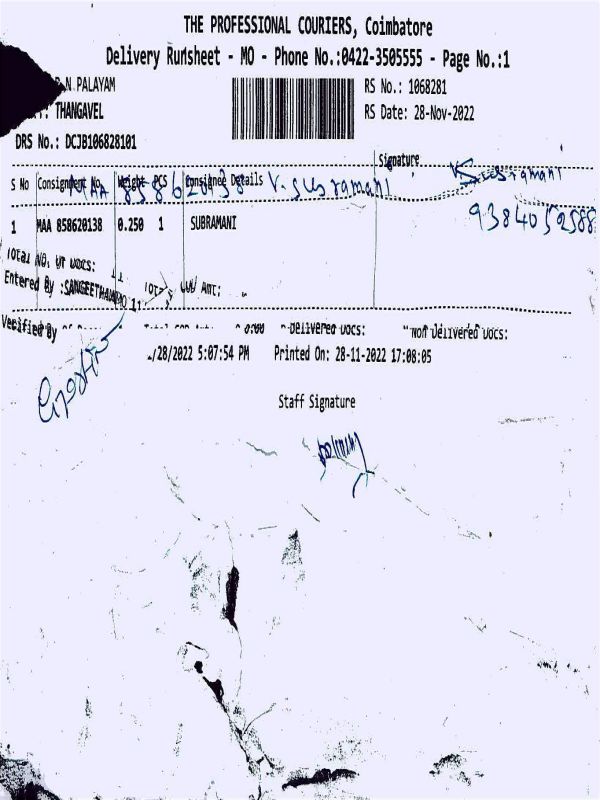 THE PROFESSIONAL COURIERS, Coimbatore
Delivery Runsheet - MO - Phone No.:0422-3505555 - Page No.:1
N.PALAYAM
RS No.: 1068281
THANGAVEL
RS Date: 28-Nov-2022
DRS No.: DCJB106828101
S No Consignment No. Weight PCS Consignee Details Signature
MAA 858620138 V. Subramani V. Subramani
9384052588
1 MAA 858620138 0.250 1 SUBRAMANI
Total No. of Docs:
Entered By :SANGEETHA
Amt:
Verified By 0.00 Delivered Docs: Non Delivered Docs:
/28/2022 5:07:54 PM Printed On: 28-11-2022 17:08:05
Staff Signature